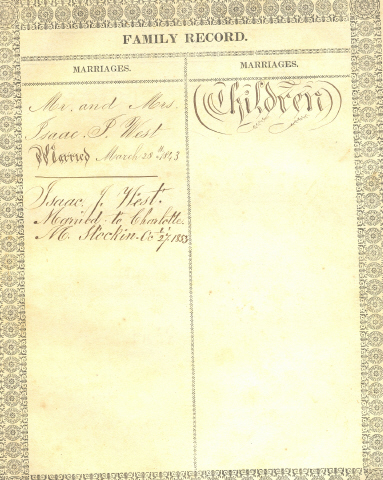 FAMILY RECORD.
MARRIAGES.
Mr. and Mrs.
Isaac. P. West
Married March 28th
Isaac. J. West.
Married to Charlotte.
M. Stockin. Oct 27
MARRIAGES.
(Children)